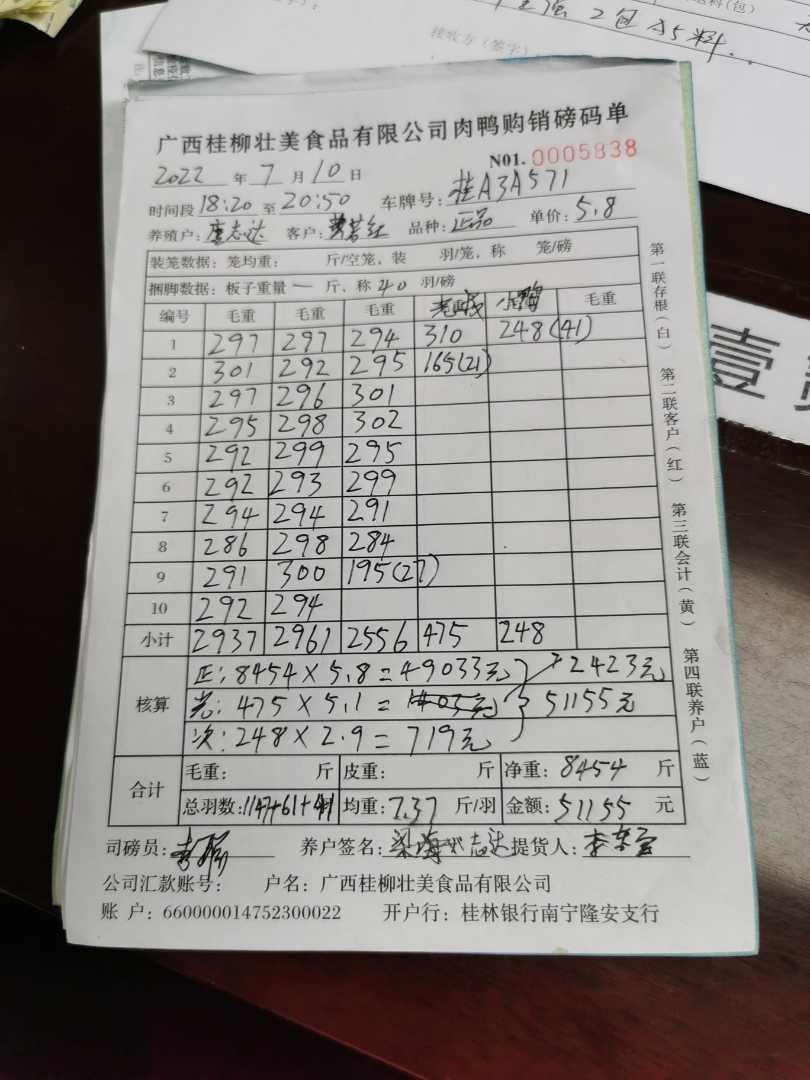 2包A5料..
接收方(签字)
广西桂柳壮美食品有限公司肉鸭购销磅码单
2022 年 7 月 10 日 N01. 0005838
时间段 18:20 至 20:50 车牌号: 桂A3A571
养殖户: 志达 客户: 品种: 正品 单价: 5.8
装笼数据: 笼均重: 斤/空笼, 装 羽/笼, 称 笼/磅
捆脚数据: 板子重量 一 斤, 称 40 羽/磅
编号 毛重 毛重 毛重 毛重
1 297 297 294 310 248(41)
2 301 292 295 165(21)
3 297 296 301
4 295 298 302
5 292 299 295
6 292 293 299
7 294 294 291
8 286 298 284
9 291 300 195(27)
10 292 294
小计 2937 2961 2556 475 248
核算 正: 8454 × 5.8 = 49033元 2423元
475 × 5.1 = 51155元
次: 248 × 2.9 = 719元
合计 毛重: 斤 皮重: 斤 净重: 8454 斤
总羽数: 1147+61+41 均重: 7.37 斤/羽 金额: 51155 元
司磅员: 养户签名: 志达 提货人: 李
公司汇款账号: 户名: 广西桂柳壮美食品有限公司
账 户: 660000014752300022 开户行: 桂林银行南宁隆安支行
第一联存根(白) 第二联客户(红) 第三联会计(黄) 第四联养户(蓝)
壹